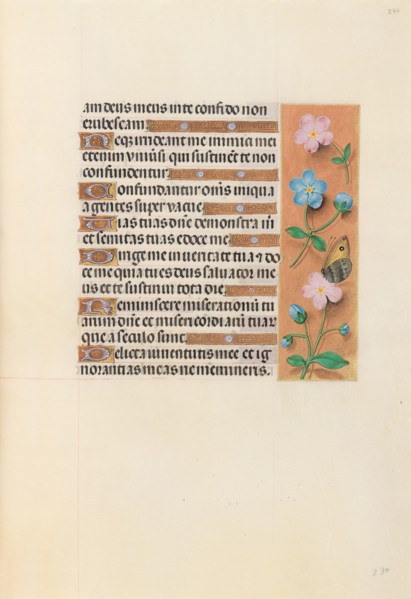 am deus meus in te confido non
erubescam.
Neq; irrideant me inimici mei
etenim vniũsi qui sustinẽt te non
confundentur.
Confundantur oms iniqua
agentes super vacue.
Uias tuas dñe demonstra m
et semitas tuas edoce me.
Dirige me in veritate tua & do
ce me quia tu es deus saluator me
us et te sustinui tota die.
Reminiscere miserationũ tu
arum dñe et misericordiarũ tuar
que a seculo sunt.
Delicta iuuentutis mee et ig
norantias meas ne memineris.
230